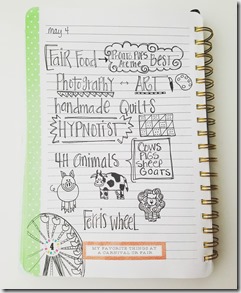 may 4
Fair Food → PRONTO PUPS
ARE THE BEST
PHOTOGRAPHY ↔ ART
handmade Quilts
HYPNOTIST
4H animals
COWS
PIGS
sheep
Goats
Ferris Wheel
MY FAVORITE THINGS AT
A CARNIVAL OR FAIR